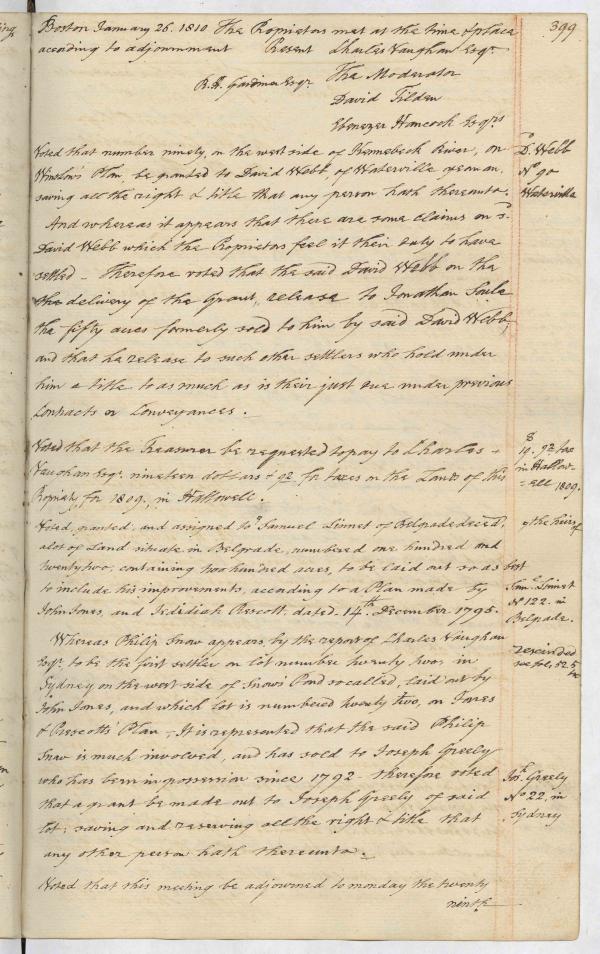 399
Boston January 26. 1810 The Proprietors met at the time & place
according to adjournment Present Charles Vaughan Esqr
R. H. Gardiner Esqr. The Moderator
David Tilden
Ebenezer Hancock Esqrs
Voted that number ninety, on the west side of Kennebeck River, on
Winslows Plan, be granted to David Webb, of Waterville yeoman,
saving all the right & title that any person hath thereunto.
D. Webb
No 90
Waterville
And whereas it appears that there are some claims on sd.
David Webb which the Proprietors feel it their duty to have
settled - Therefore voted that the said David Webb on the
the delivery of the Grant, release to Jonathan Soule
the fifty acres formerly sold to him by said David Webb,
and that he release to such other settlers who hold under
him a title to as much as is their just due under previous
Contracts or Conveyances.
Voted that the Treasurer be requested to pay to Charles
Vaughan Esqr. nineteen dollars & 92 for taxes on the Lands of this
Propriety, for 1809, in Hallowell.
$
19.92 tax
in Hallow-
-ell 1809.
Voted, granted, and assigned to Samuel Linnet of Belgrade deced.
a lot of Land situate in Belgrade, numbered one hundred and
twenty two, containing two hundred acres, to be laid out so as best
to include his improvements, according to a Plan made by
John Jones, and Jedidiah Prescott, dated 14th December 1795.
the heirs of
Saml. Linnet
No 122 in
Belgrade.
Whereas Philip Snow appears, by the report of Charles Vaughan
Esqr. to be the first settler on lot number twenty two, in
Sydney on the west side of Snows Pond so called, laid out by
John Jones, and which lot is numbered twenty two, on Jones
& Prescotts Plan - It is represented that the said Philip
Snow is much involved, and has sold to Joseph Greely
who has been in possession since 1792 therefore voted
that a grant be made out to Joseph Greely of said
lot; saving and reserving all the right & title that
any other person hath thereunto.
rescinded
see fol. 525
Jos. Greely
No 22, in
Sydney
Voted that this meeting be adjourned to monday the twenty
ninth